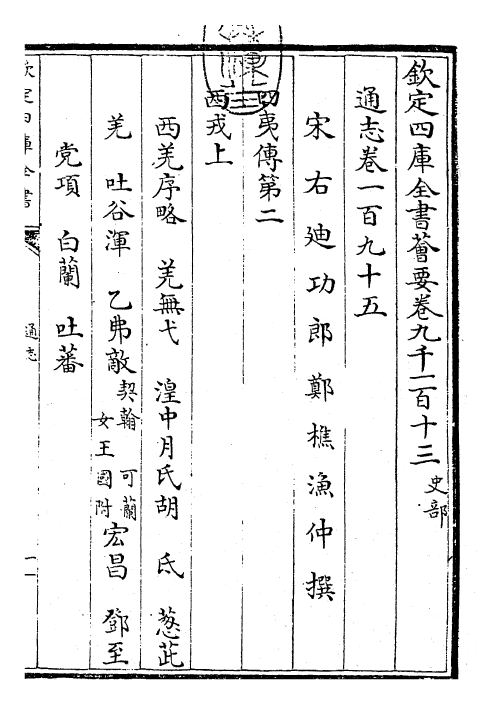 欽定四庫全書薈要卷九千二百十三 史部
通志卷一百九十五
宋右廸功郎鄭樵漁仲撰
四夷傳第二
西戎上
西羌序略 羌無弋 湟中月氏胡 氐 葱茈
羌 吐谷渾 乙弗敵 契翰 可蘭 女王國附 宏昌 鄧至
党項 白蘭 吐蕃
欽定四庫全書
通志